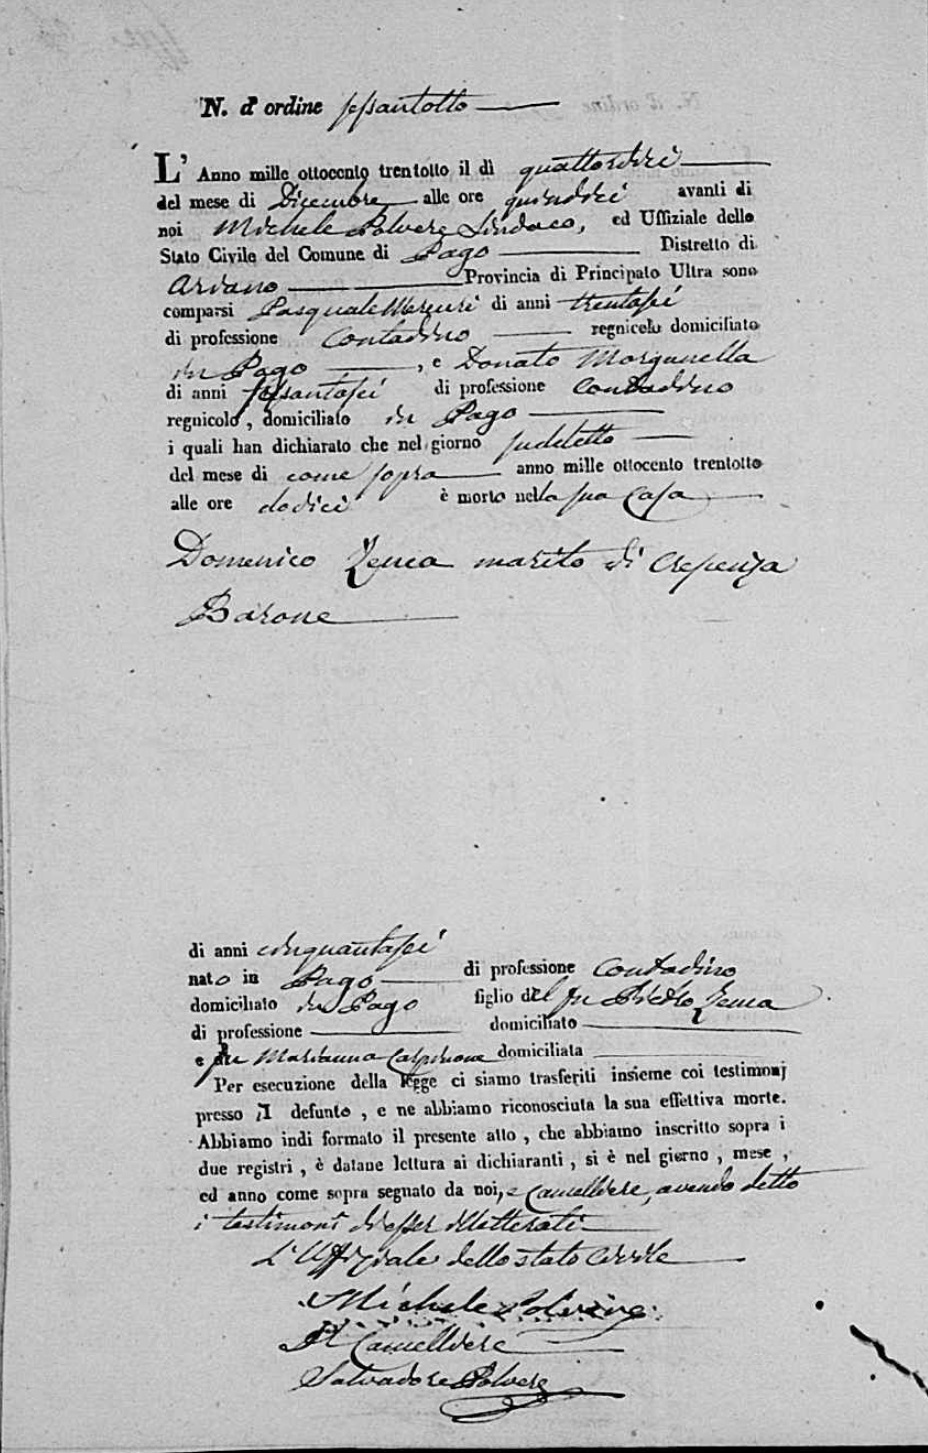 N. d' ordine sessantotto
L' Anno mille ottocento trentotto il dì quattordici
del mese di Dicembre alle ore quindici avanti di
noi Michele Polvere Sindaco, ed Uffiziale dello
Stato Civile del Comune di Pago Distretto di
Ariano Provincia di Principato Ultra sono
comparsi Pasquale Mercuri di anni trentasei
di professione Contadino regnicolo domiciliato
in Pago, e Donato Morganella
di anni sessantasei di professione Contadino
regnicolo, domiciliato in Pago
i quali han dichiarato che nel giorno sudetto
del mese di come sopra anno mille ottocento trentotto
alle ore dodici è morto nella sua Casa
Domenico Zenca marito di Crescenza
Barone
di anni cinquantasei
nato in Pago di professione Contadino
domiciliato in Pago figlio del fu Pietro Zenca
di professione domiciliato
e fu Marianna domiciliata
Per esecuzione della legge ci siamo trasferiti insieme coi testimonj
presso il defunto, e ne abbiamo riconosciuta la sua effettiva morte.
Abbiamo indi formato il presente atto, che abbiamo inscritto sopra i
due registri, è datane lettura ai dichiaranti, si è nel giorno, mese,
ed anno come sopra segnato da noi, e Cancelliere, avendo detto
i testimoni di esser illetterati
L' Uffiziale dello stato Civile
Michele Polvere
Il Cancelliere
Salvadore Polvere